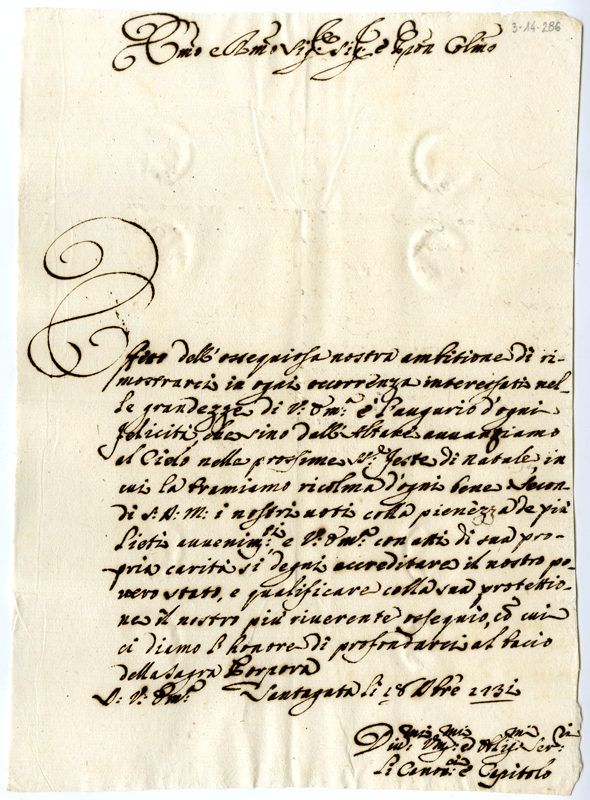 3-14-286
Emo e Rmo Sig.re Sig.re e Pron Colmo
Effetto dell'ossequiosa nostra ambitione di ri-
mostrarci in ogni occorrenza interessati nel-
le grandezze di V. Em.a è l'augurio d'ogni
felicità, che sino dall'Altare avvanziamo
al Cielo nelle prossime S.te feste di natale, in
cui la bramiamo ricolma d'ogni bene. Secon-
di S. D. M. i nostri voti colla pienezza de più
lieti avvenim.ti, e V. Em.a con atti di sua pro-
pria carità si degni accreditare il nostro po-
vero stato, e qualificare colla sua protettio-
ne il nostro più riverente ossequio, cō cui
ci diamo l'honore di profondarci al bacio
della Sagra Porpora
D. V. Em.a Santagata li 18 Xbre 1731
Div.mi Um.mi ed Obli.mi Ser.ri
Li Can.ci e Capitolo